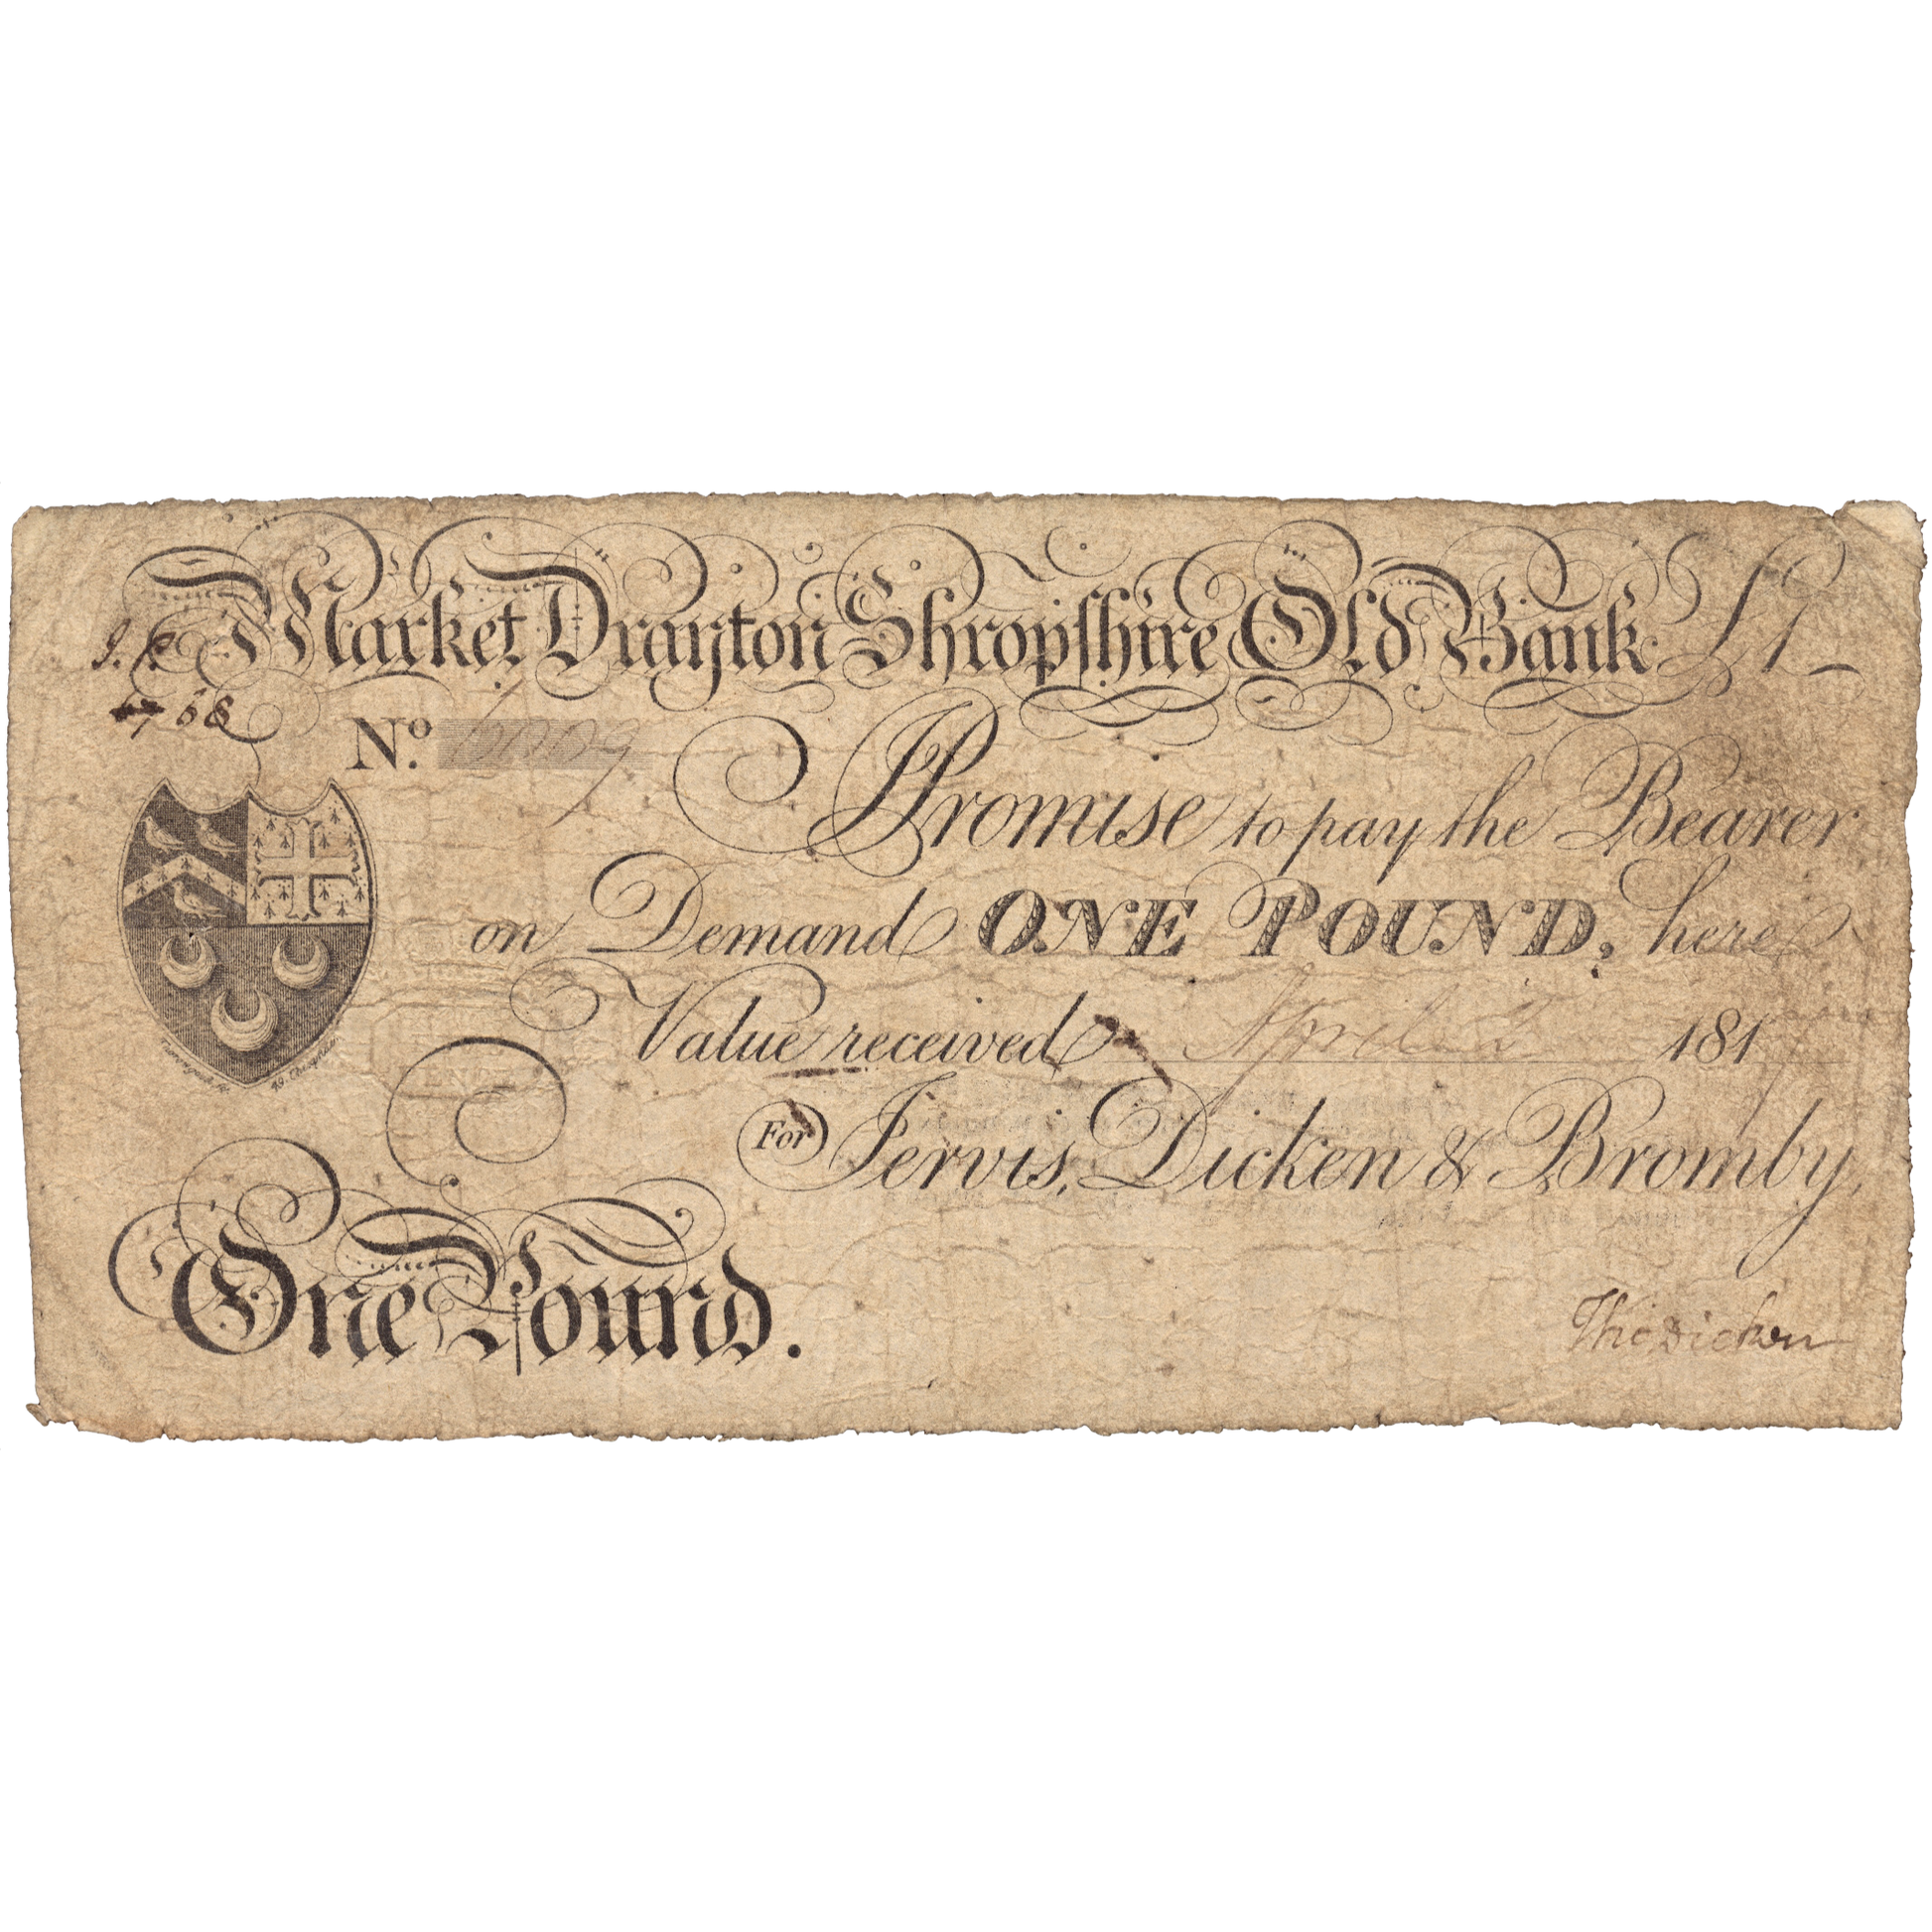 Market Drayton Shropſhire Old Bank. £1
No.
I Promise to pay the Bearer
on Demand ONE POUND, here
Value received April 2 181
For Jervis, Dicken & Bromby,
One Pound.
Tho Dicken